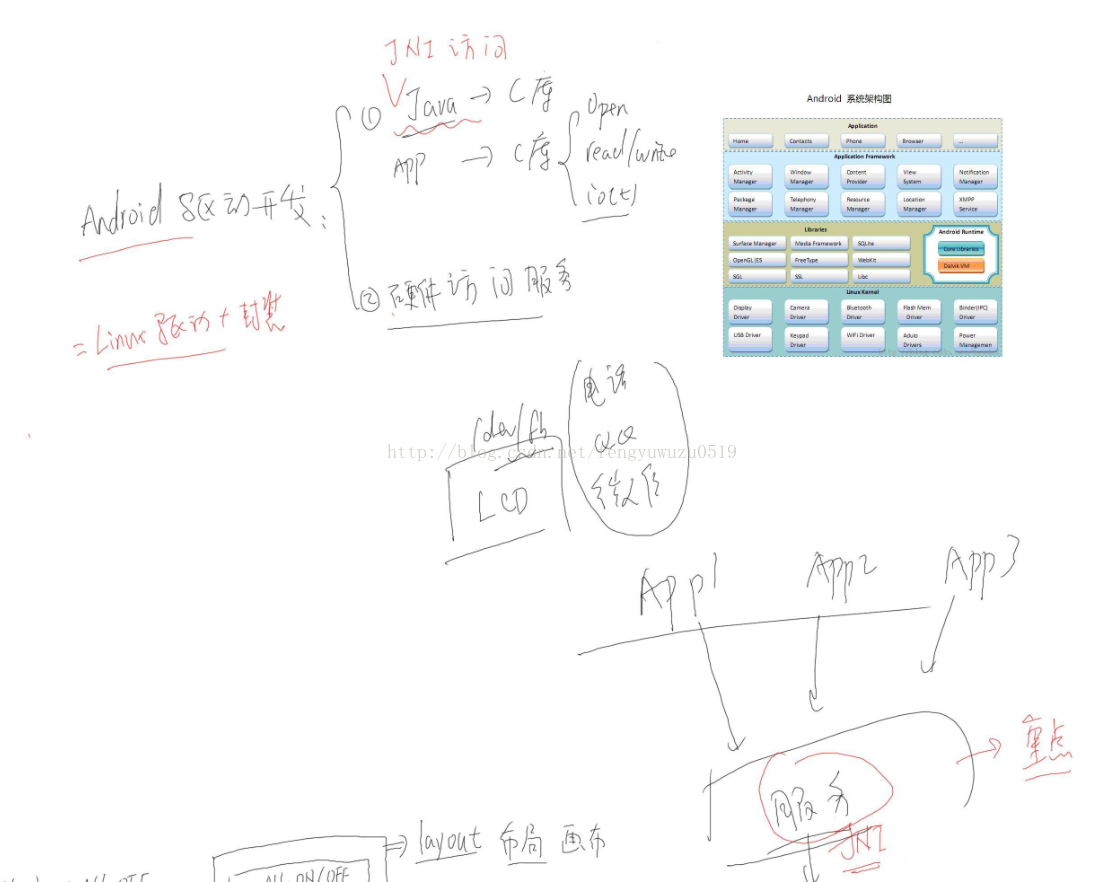 JNI 访问
① Java → C库
APP → C库
open
read/write
ioctl
Android 驱动开发:
② 硬件访问服务
= Linux 驱动 + 封装
Android 系统架构图
Application
Home Contacts Phone Browser ...
Application Framework
Activity Manager Window Manager Content Provider View System Notification Manager
Package Manager Telephony Manager Resource Manager Location Manager XMPP Service
Libraries
Surface Manager Media Framework SQLite
OpenGL|ES FreeType WebKit
SGL SSL Libc
Android Runtime
Core Libraries
Dalvik VM
Linux Kernel
Display Driver Camera Driver Bluetooth Driver Flash Mem Driver Binder(IPC) Driver
USB Driver Keypad Driver WiFi Driver Auduo Drivers Power Managemen
/dev/fb
LCD
电话
QQ
微信
http://blog.csdn.net/fengyuwuzu0519
App1 App2 App3
服务
JNI
→ 重点
⇒ layout 布局 画布
ALL ON/OFF